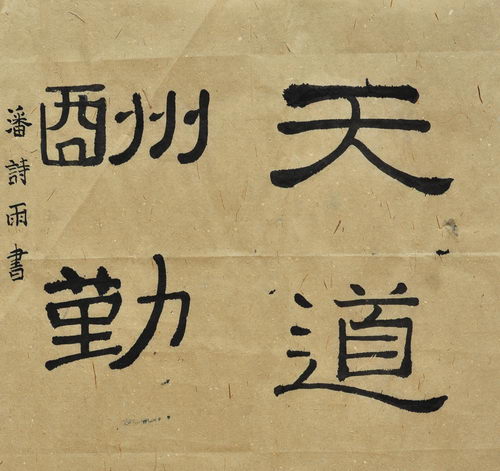 天道
酬勤
潘詩雨書